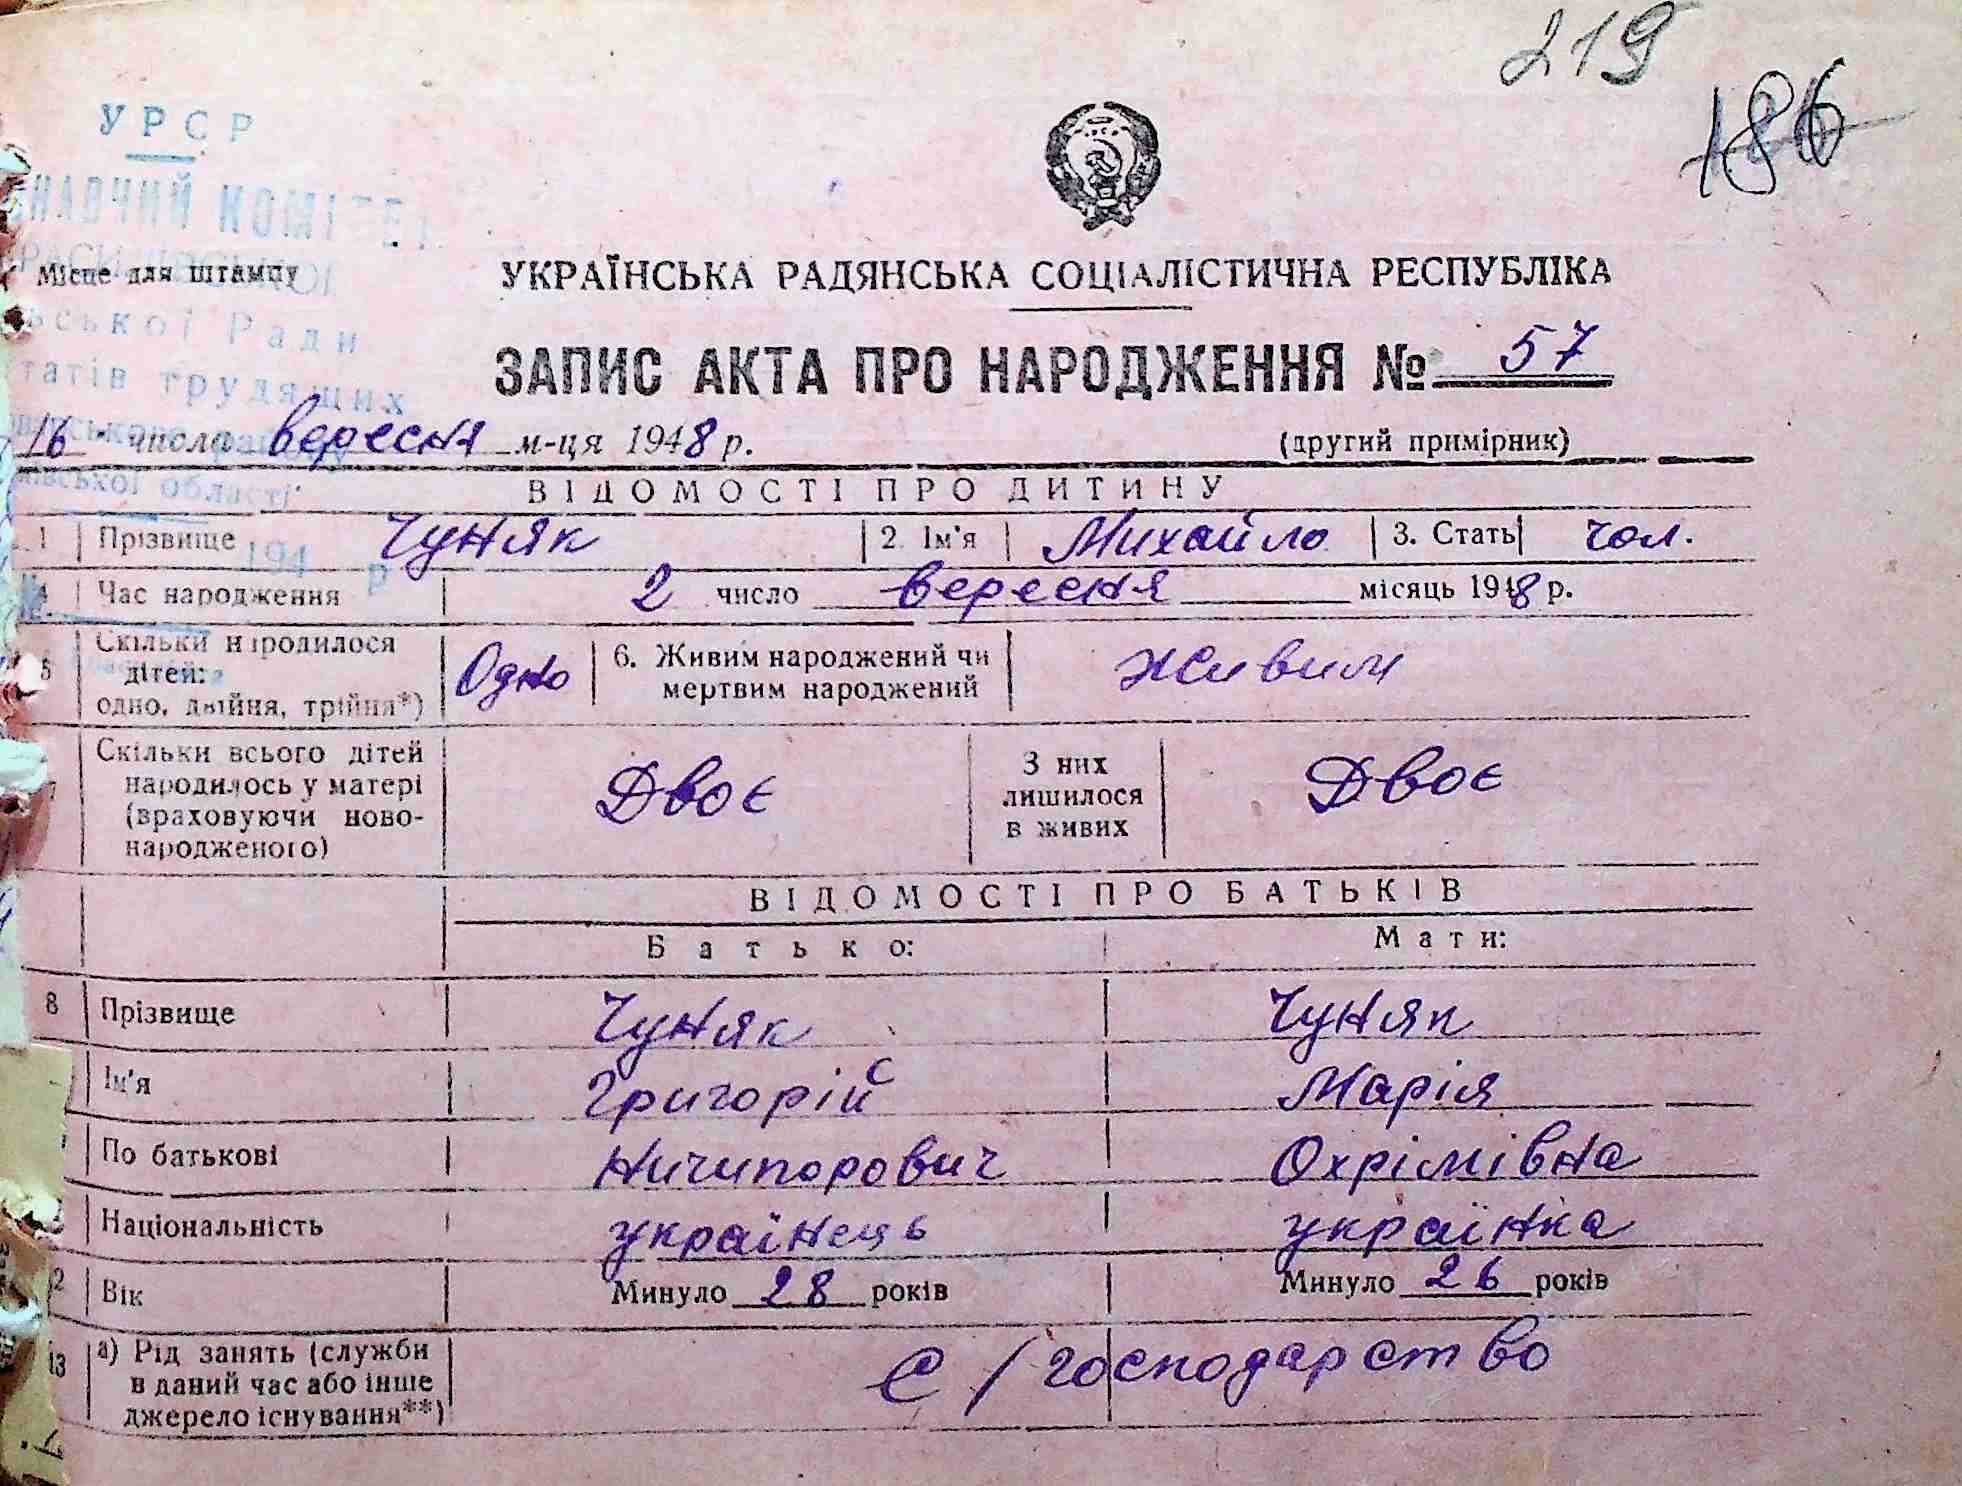 219
186
УРСР
НАВЧИЙ КОМІТЕ
Місце для штампу
ської Ради
татів трудящих
івської області
194 р
УКРАЇНСЬКА РАДЯНСЬКА СОЦІАЛІСТИЧНА РЕСПУБЛІКА
ЗАПИС АКТА ПРО НАРОДЖЕННЯ № 57
16 числа вересня м-ця 1948 р. (другий примірник)
ВІДОМОСТІ ПРО ДИТИНУ
1 Прізвище Чуняк 2. Ім'я Михайло 3. Стать чол.
4 Час народження 2 число вересня місяць 1948 р.
5 Скільки народилося дітей: одно, двійня, трійня*) Одно 6. Живим народжений чи мертвим народжений Живим
7 Скільки всього дітей народилось у матері (враховуючи ново-народженого) Двоє З них лишилося в живих Двоє
ВІДОМОСТІ ПРО БАТЬКІВ
Батько: Мати:
8 Прізвище Чуняк Чуняк
Ім'я Григорій Марія
По батькові Ничипорович Охрімівна
Національність українець українка
2 Вік Минуло 28 років Минуло 26 років
13 а) Рід занять (служби в даний час або інше джерело існування**) С/господарство